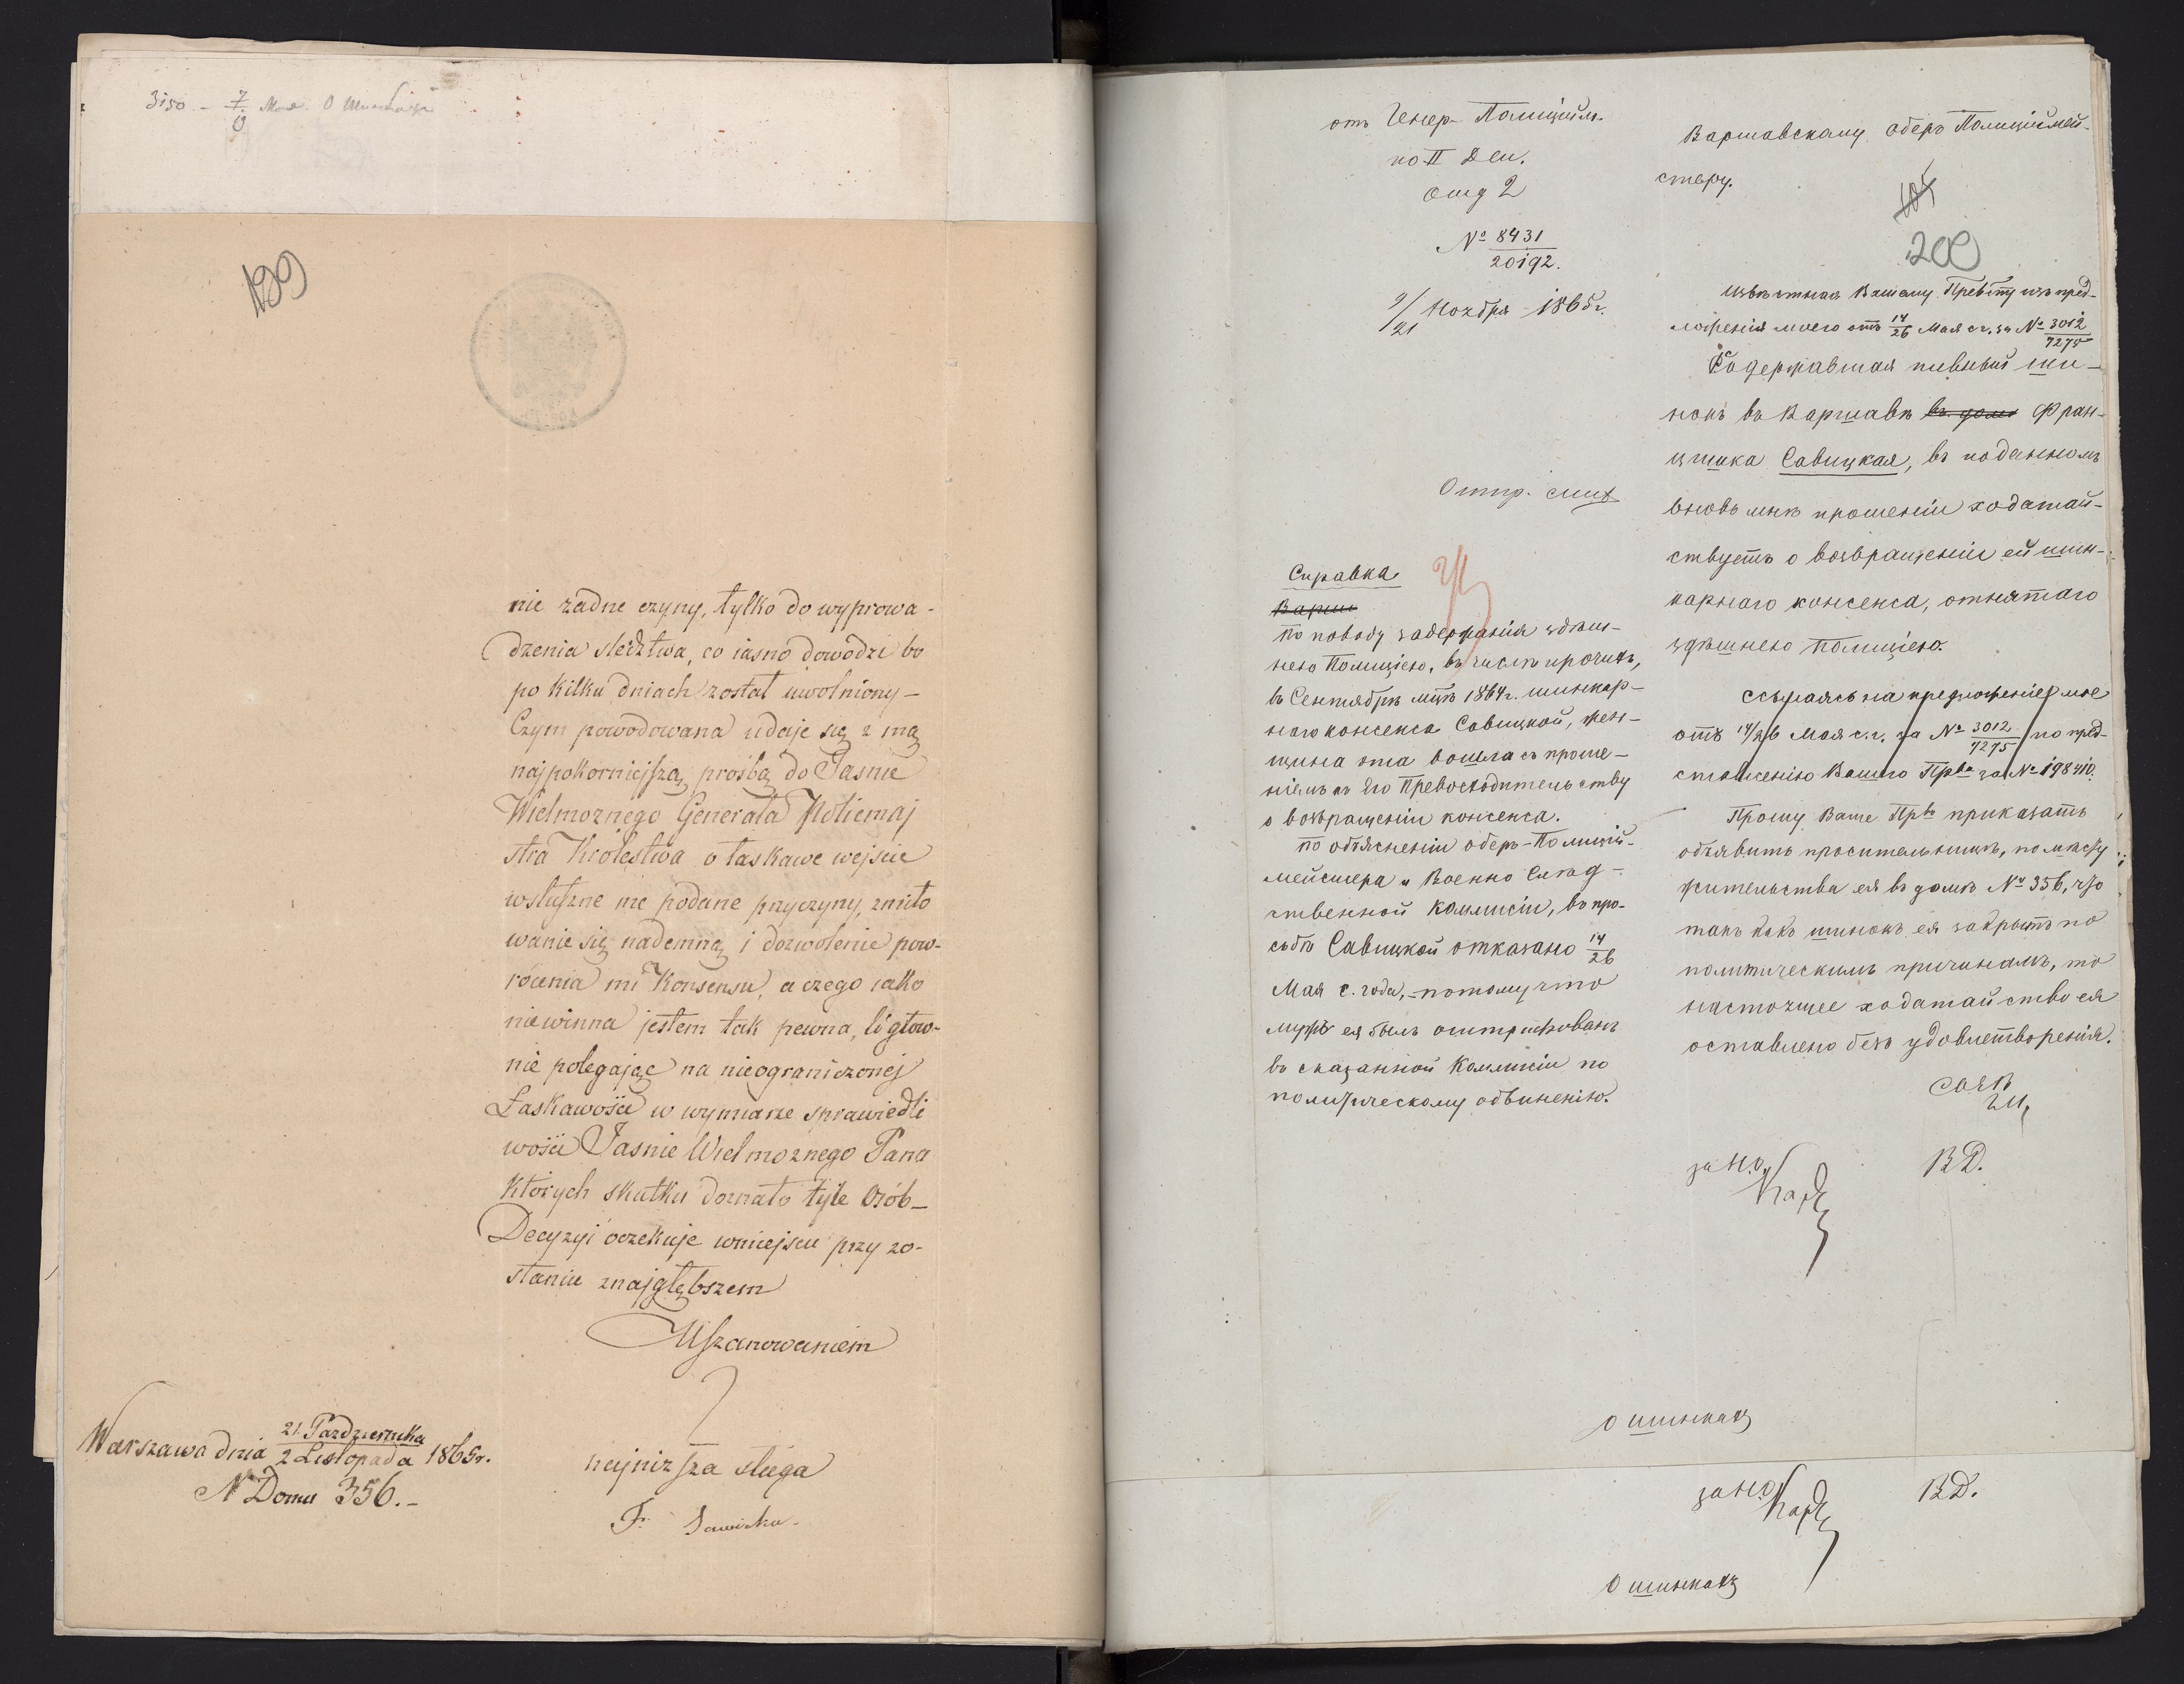 3150 - 7/0 Мая О Шинкахъ
199
nie żadne czyny, tylko do wyprowa-
dzenia sledztwa, co iasno dowodzi bo
po kilku dniach został uwolniony -
Czym powodowana udaje się z mą
najpokorniejszą prośbą do Jasnie
Wielmoznego Generała Policmaj
stra Krolestwa o łaskawe wejscie
wsłuszne me podane przyczyny, zmiło
wanie się nademną i dozwolenie pow-
rócenia mi Konsensu, a czego iako
niewinna jestem tak pewna, li głow-
nie polegając na nieograniczonej
Łaskawości w wymiarze sprawiedli
wości Jasnie Wielmoznego Pana
których skutku doznało tyle Osób -
Decyzyi oczekuje wmiejscu przy zo-
staniu znajgłębszem
Uszanowaniem
najnizsza sługa
F. Sawicka
Warszawa dnia 21 Pazdziernika / 2 Listopada 1865r.
N Domu 356. -
отъ Генер-Полицiйм.
по II Деп.
отд 2
№ 8431/20192.
9/21 Ноября 1865г.
Справка
Варш
По поводу задержанiя здѣш-
нею Полицiею, въ числѣ прочихъ,
въ Сентябрѣ мцѣ 1864г. шинкар-
наго консенса Савицкой, жен-
щина эта вошла съ проше-
нiемъ къ Его Превосходительству
о возвращенiи консенса.
По объясненiи оберъ-Полицiй-
мейстера и Военно Слѣд-
ственной Коммисiи, въ про-
сьбѣ Савицкой отказано 14/26
Мая с. года, - потому что
мужъ ея былъ оштрафованъ
въ сказанной Коммисiи по
политическому обвиненiю.
Варшавскому Оберъ Полицiймей-
стеру.
200
Извѣстная Вашему Превству изъ пред-
ложенiя моего отъ 14/26 Мая с.г. за № 3012/7275
Содержавшая пивный ши-
нокъ въ Варшавѣ въ домѣ Фран-
цишка Савицкая, въ поданномъ
вновь мнѣ прошенiи ходатай-
ствуетъ о возвращенiи ей шин-
карнаго консенса, отнятаго
здѣшнею полицiею.
Ссылаясь на предложенiе мое
отъ 14/26 Мая с.г. за № 3012/7275 по пред-
ставленiю Вашего Прва за № 198410.
Прошу Ваше Прво приказать
объявить просительницѣ, по мѣсту
жительства ея въ домѣ № 356, что
такъ какъ шинокъ ея закрытъ по
политическимъ причинамъ, то
настоящее ходатайство ея
оставлено безъ удовлетворенiя.
за Н.О.
В Д.
О шинкахъ
за Н.О.
В Д.
О шинкахъ